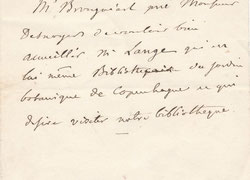 M. Brongniart prie Monsieur
Desnoyers de vouloir bien
accueillir Mr Lange qui est
lui même Bibliothécaire du jardin
botanique de Copenhague et qui
désire visiter notre bibliothèque.